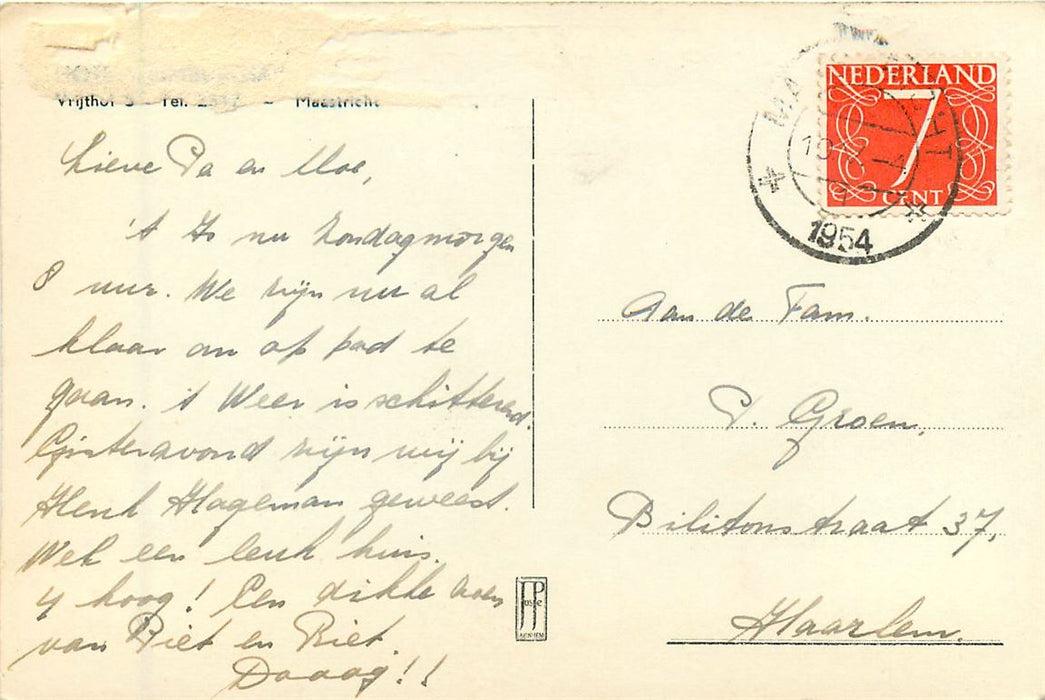 Vrijthof 3 - Tel. - Maastricht
Lieve Pa en Moe,
't Is nu Zondagmorgen
8 uur. We zijn nu al
klaar om op pad te
gaan. 't Weer is schitterend.
Gisteravond zijn wij bij
Henk Hageman geweest.
Wel een leuk huis.
4 hoog! Een dikke zoen
van Piet en Riet.
Daaag!!
NEDERLAND
7
CENT
1954
Aan de Fam.
P. Groen,
Bilitonstraat 37,
Haarlem.
JosPé
ARNHEM